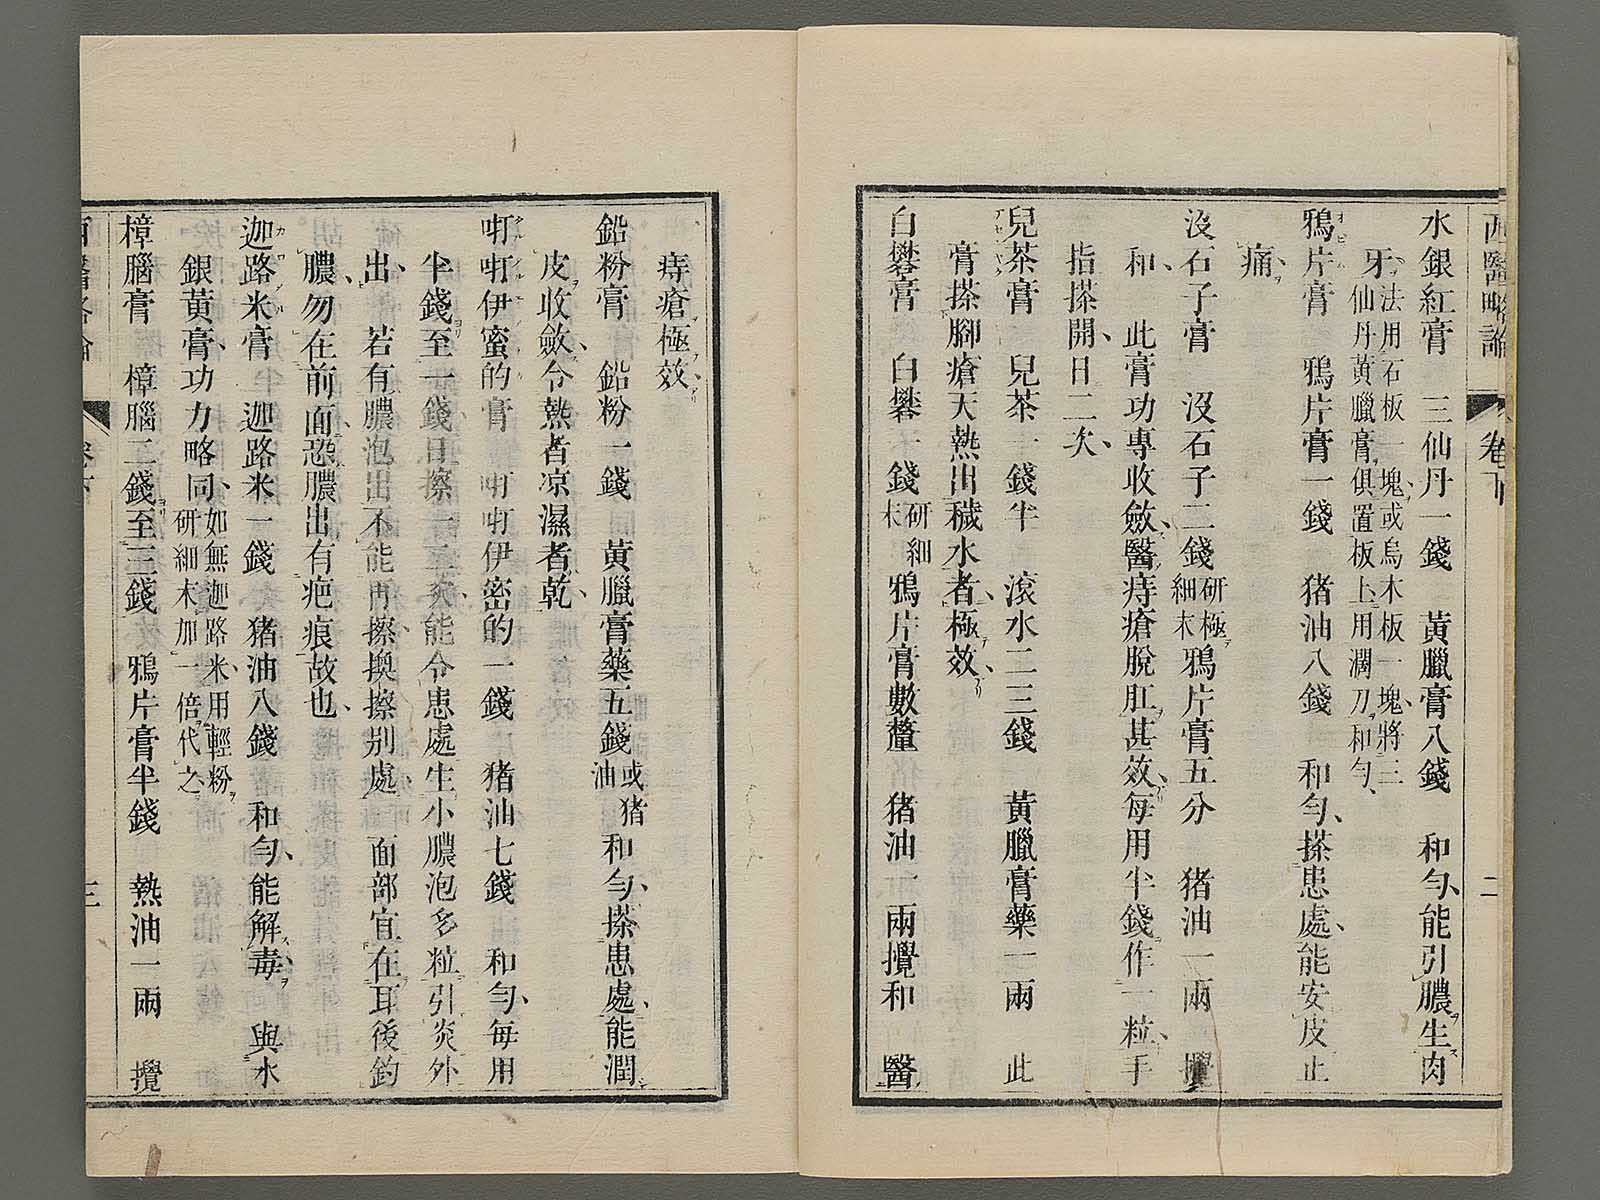 西醫略論 卷下 二
水銀紅膏 三仙丹一錢 黃臘膏八錢 和勻、能引膿生肉
法用石板一塊或烏木板一塊、將三
牙 仙丹黃臘膏俱置板上、用濶刀和勻、
鴉片膏 鴉片膏一錢 猪油八錢 和勻、搽患處、能安皮止
痛、
沒石子膏 沒石子二錢研極細末 鴉片膏五分 猪油一兩 攪
和、 此膏功專收斂、醫痔瘡脫肛甚效、每用半錢作一粒、手
指搽開、日二次、
兒茶膏 兒茶一錢半 滾水二三錢 黃臘膏藥一兩 此
膏搽腳瘡天熱出穢水者、極效、
白礬膏 白礬一錢研細末 鴉片膏數釐 猪油一兩攪和 醫
痔瘡極效、
鉛粉膏 鉛粉一錢 黃臘膏藥五錢或猪油 和勻、搽患處、能潤
皮收斂、令熱者凉濕者乾、
㖇㖇伊蜜的膏 㖇㖇伊密的一錢 猪油七錢 和勻、每用
半錢至一錢日擦一二次、能令患處生小膿泡多粒引炎外
出、 若有膿泡出不能再擦、換擦别處、 面部宜在耳後釣
膿、勿在前面、恐膿出有疤痕故也、
迦路米膏 迦路米一錢 猪油八錢 和勻、能解毒、 與水
銀黃膏、功力略同、如無迦路米、用輕粉研細末加一倍代之、
樟腦膏 樟腦二錢至三錢 鴉片膏半錢 熱油一兩 攪
西醫略論 卷下 三